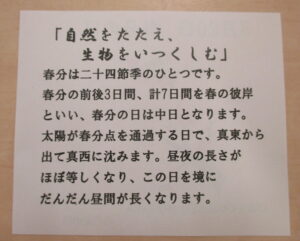 「自然をたたえ、
生物をいつくしむ」
春分は二十四節季のひとつです。
春分の前後3日間、計7日間を春の彼岸
といい、春分の日は中日となります。
太陽が春分点を通過する日で、真東から
出て真西に沈みます。昼夜の長さが
ほぼ等しくなり、この日を境に
だんだん昼間が長くなります。